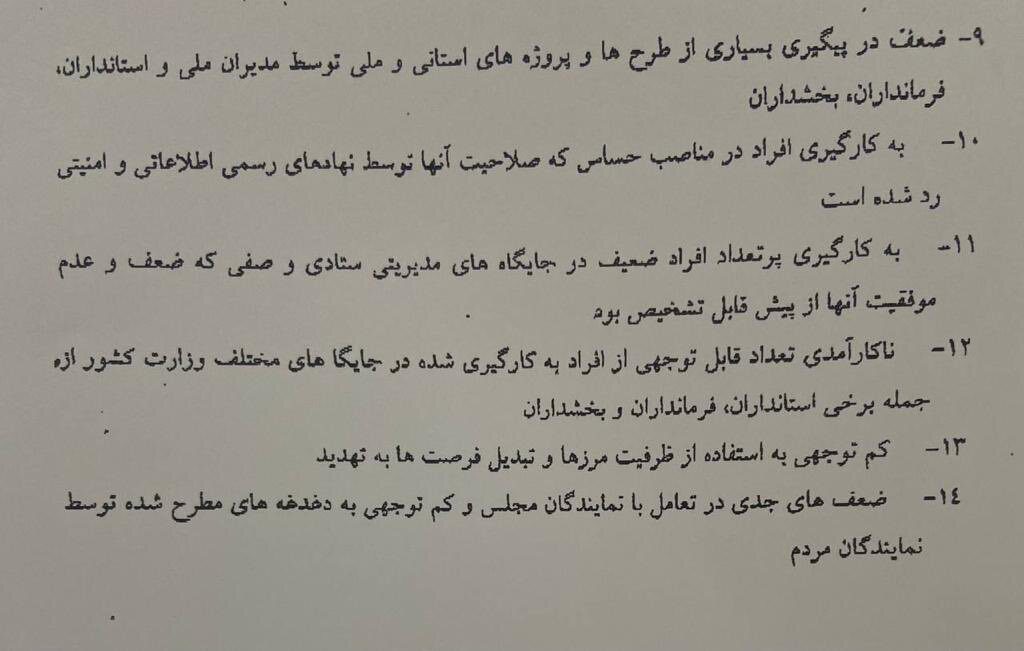 ۹- ضعف در پیگیری بسیاری از طرح ها و پروژه های استانی و ملی توسط مدیران ملی و استانداران،
فرمانداران، بخشداران
۱۰- به کارگیری افراد در مناصب حساس که صلاحیت آنها توسط نهادهای رسمی اطلاعاتی و امنیتی
رد شده است
۱۱- به کارگیری پرتعداد افراد ضعیف در جایگاه های مدیریتی ستادی و صفی که ضعف و عدم
موفقیت آنها از پیش قابل تشخیص بود
۱۲- ناکارآمدی تعداد قابل توجهی از افراد به کارگیری شده در جایگا های مختلف وزارت کشور از
جمله برخی استانداران، فرمانداران و بخشداران
۱۳- کم توجهی به استفاده از ظرفیت مرزها و تبدیل فرصت ها به تهدید
۱٤- ضعف های جدی در تعامل با نمایندگان مجلس و کم توجهی به دغدغه های مطرح شده توسط
نمایندگان مردم